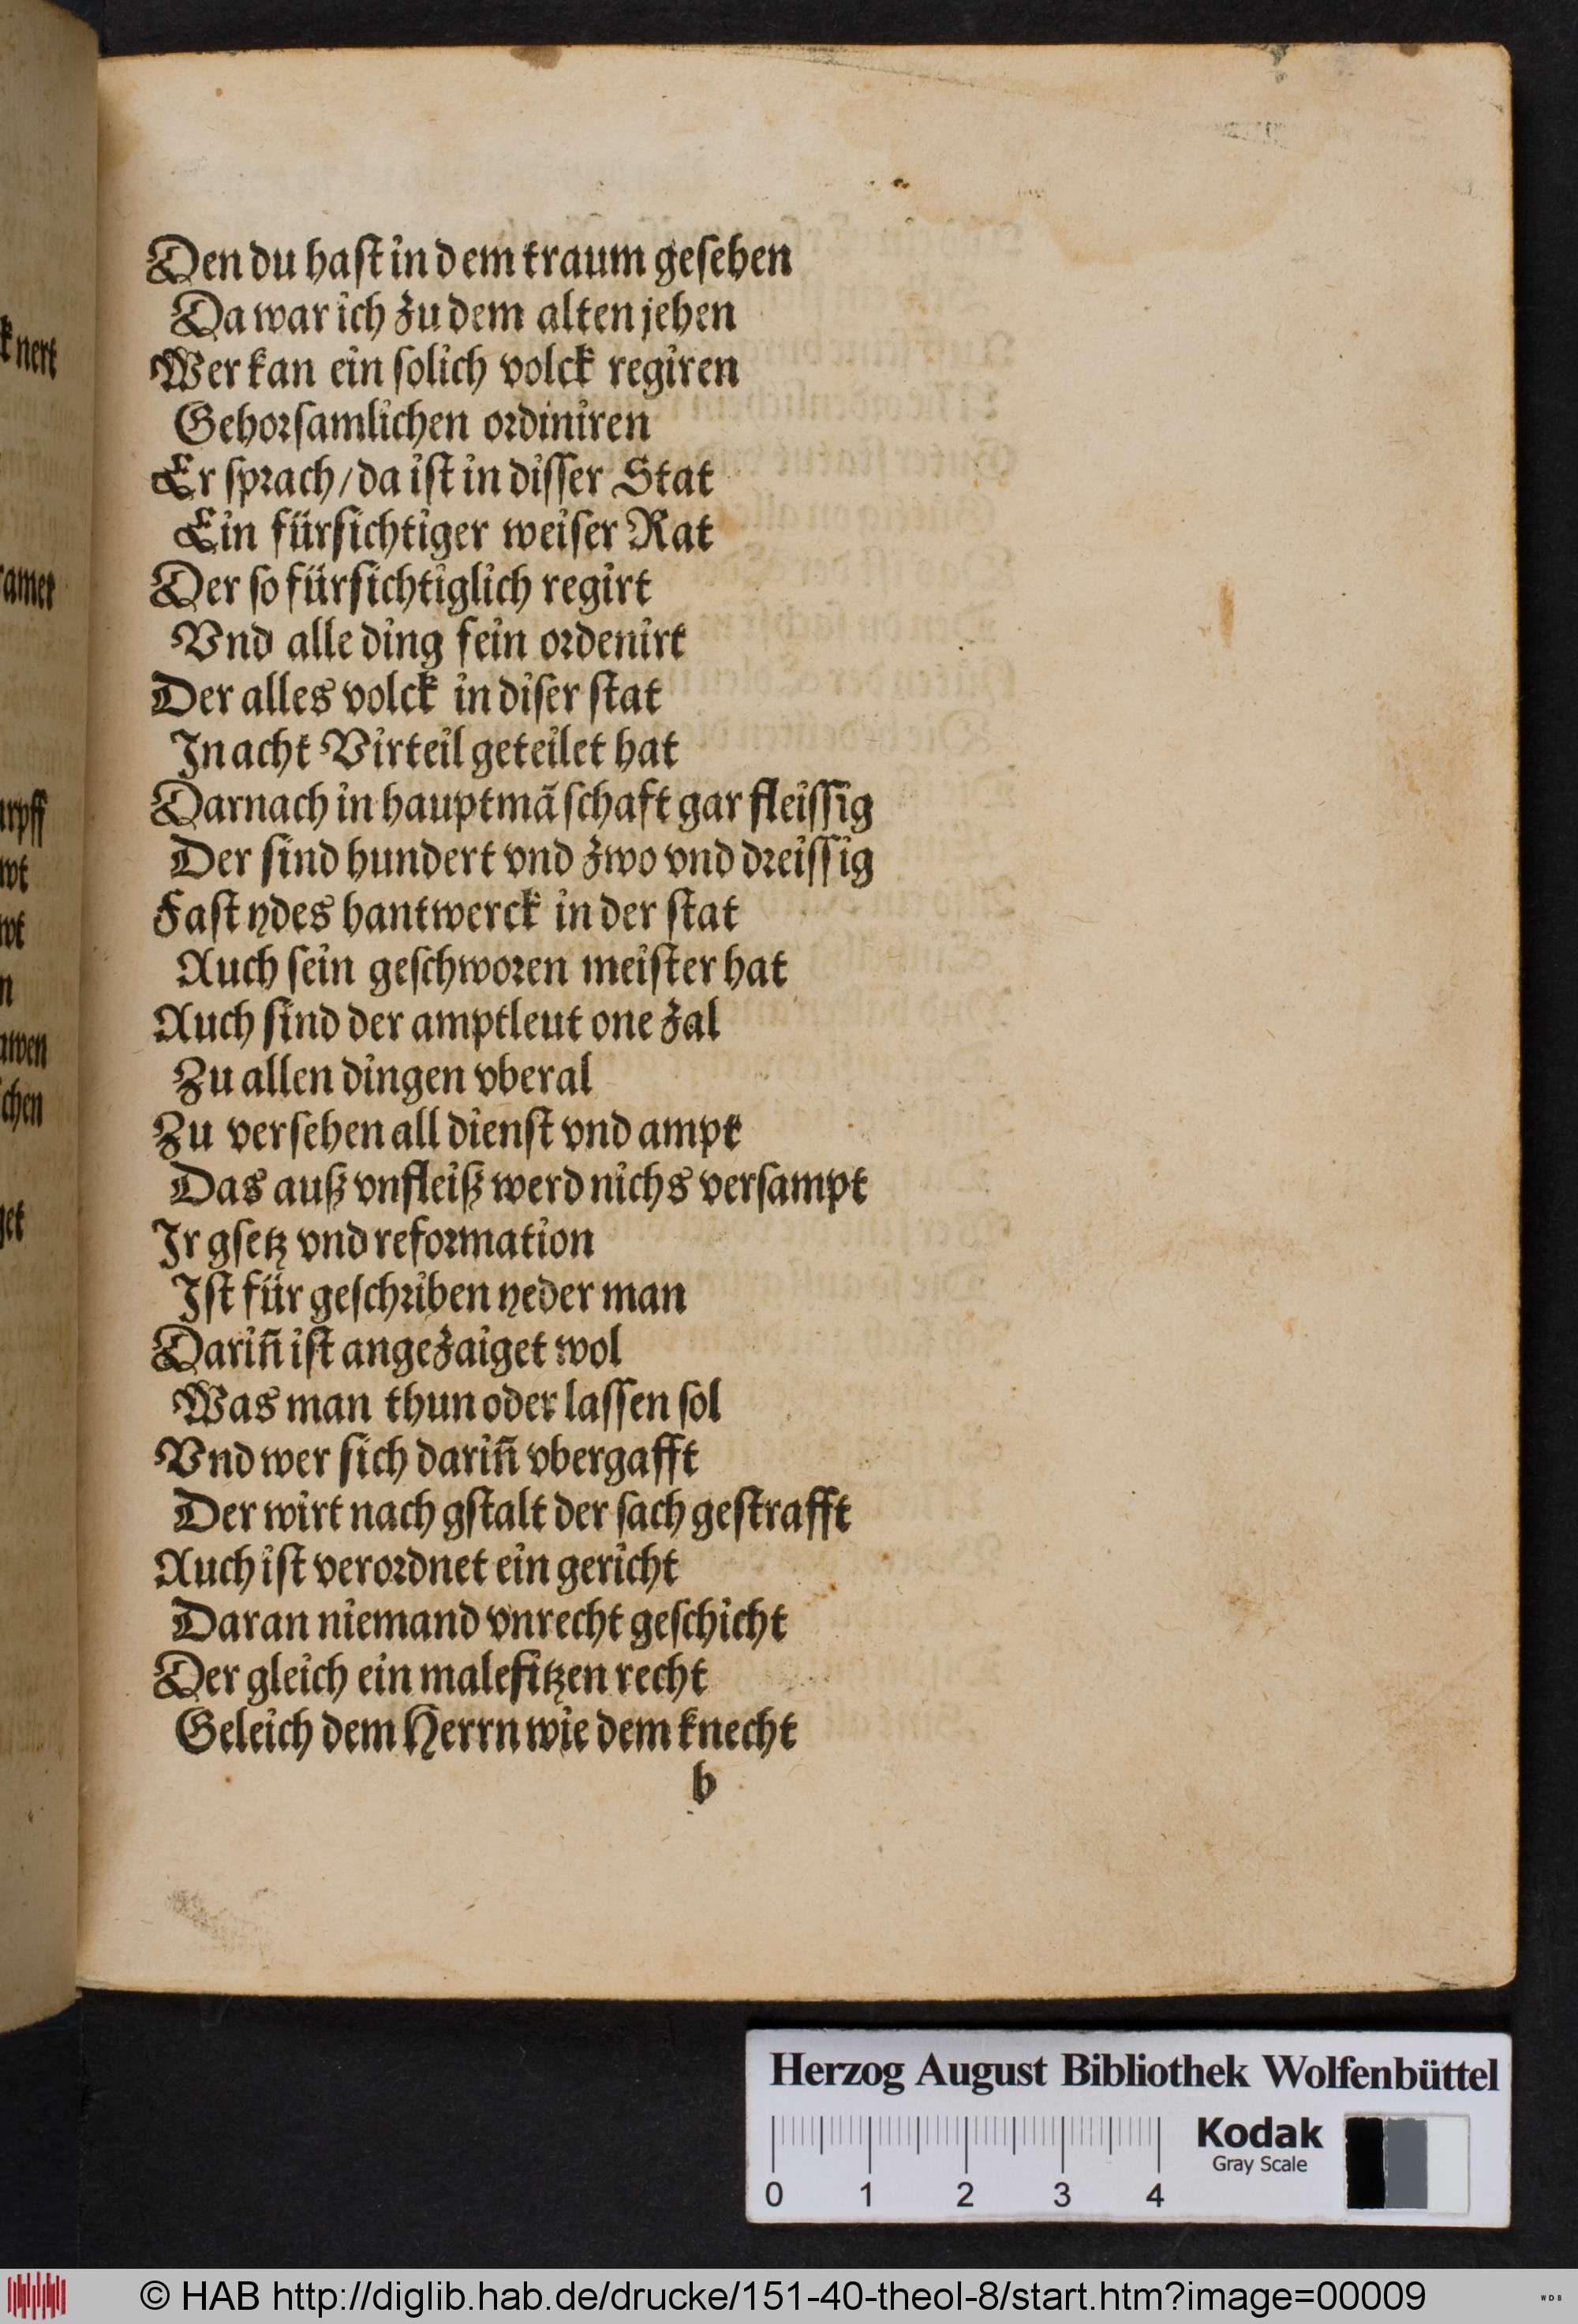 Den du haſt in dem traum geſehen
Da war ich zu dem alten jehen
Wer kan ein ſolich volck regiren
Gehorſamlichen ordiniren
Er ſprach / da iſt in diſſer Stat
Ein fürſichtiger weiſer Rat
Der ſo fürſichtiglich regirt
Vnd alle ding fein ordenirt
Der alles volck in diſer ſtat
In acht Virteil geteilet hat
Darnach in hauptmãſchaft gar fleiſſig
Der ſind hundert vnd zwo vnd dreiſſig
Faſt ydes hantwerck in der ſtat
Auch ſein geſchworen meiſter hat
Auch ſind der amptleut one zal
Zu allen dingen vberal
Zu verſehen all dienſt vnd ampt
Das auß vnfleiß werd nichs verſampt
Ir gſetz vnd reformation
Iſt für geſchriben yeder man
Dariñ iſt angezaiget wol
Was man thun oder laſſen ſol
Vnd wer ſich dariñ vbergafft
Der wirt nach gſtalt der ſach geſtrafft
Auch iſt verordnet ein gericht
Daran niemand vnrecht geſchicht
Der gleich ein malefitzen recht
Geleich dem Herrn wie dem knecht
b
Herzog August Bibliothek Wolfenbüttel
Kodak
Gray Scale
0 1 2 3 4
© HAB http://diglib.hab.de/drucke/151-40-theol-8/start.htm?image=00009